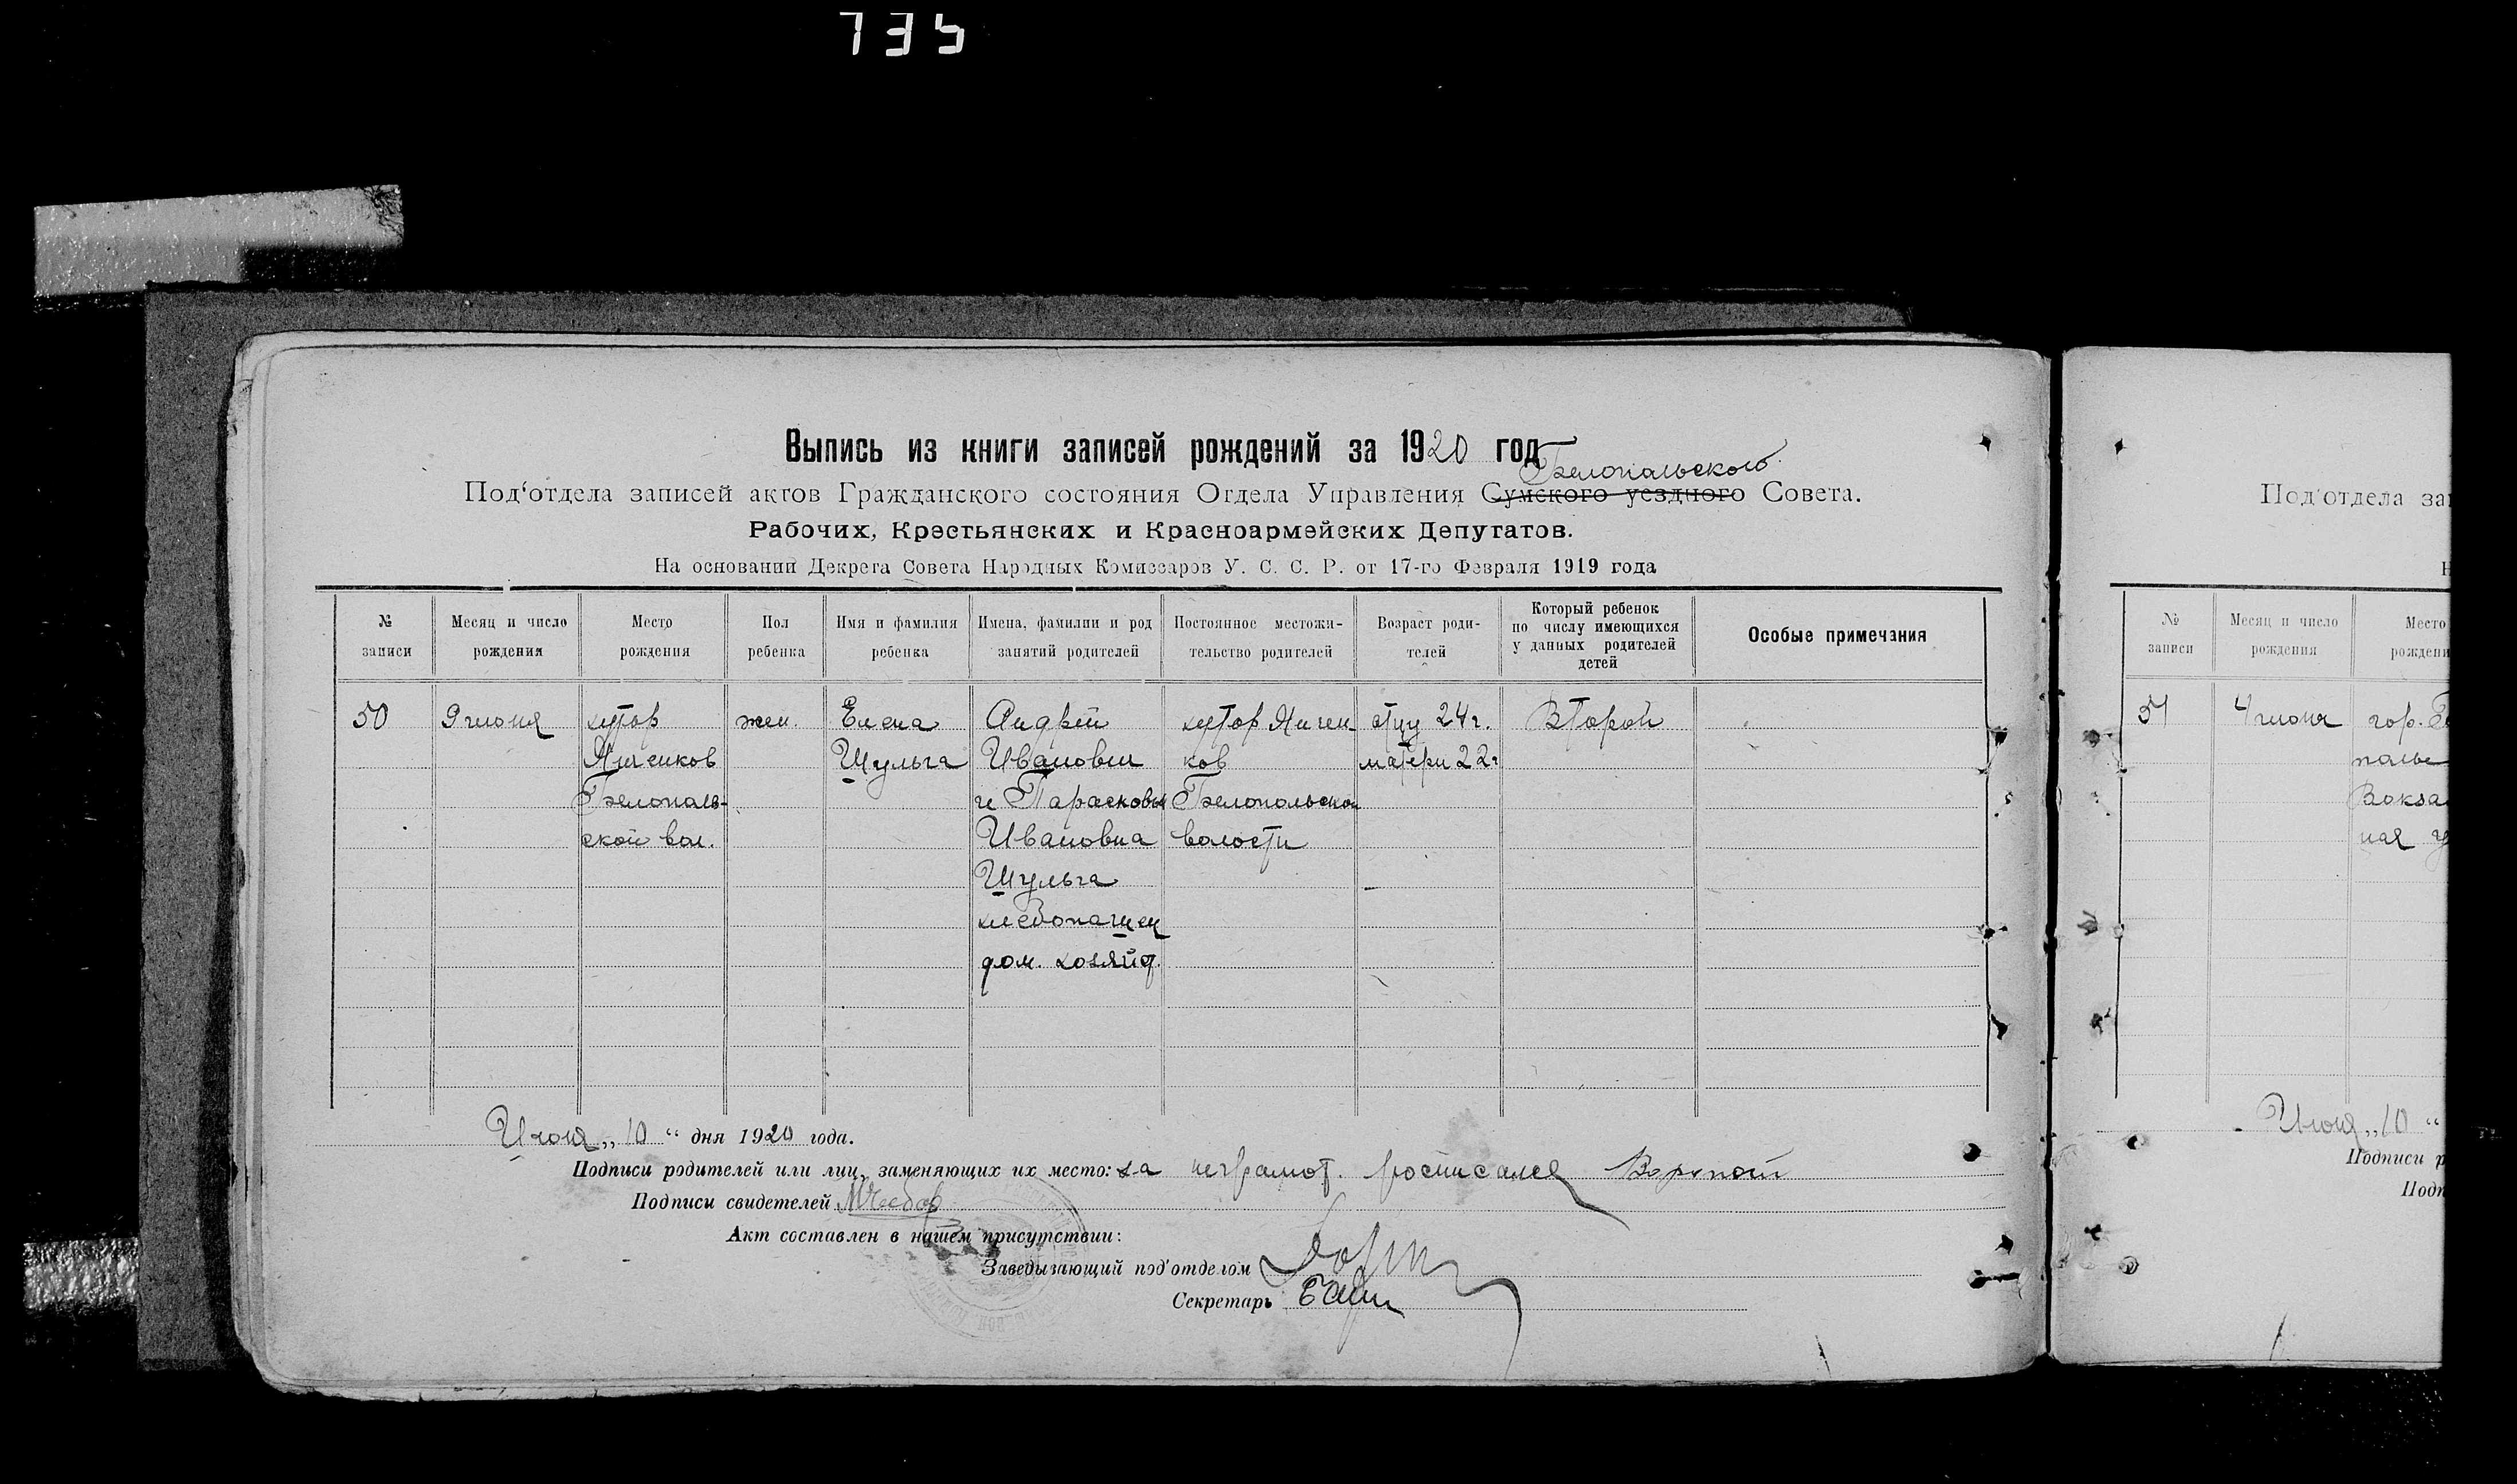 735
Выпись из книги записей рождений за 1920 год
Белопольского
Под‘отдела записей актов Гражданского состояния Отдела Управления Сумского уездного Совета.
Рабочих, Крестьянских и Красноармейских Депутатов.
На основании Декрета Совета Народных Комиссаров У. С. С. Р. от 17-го Февраля 1919 года
№ записи
Месяц и число рождения
Место рождения
Пол ребенка
Имя и фамилия ребенка
Имена, фамилии и род занятий родителей
Постоянное местожи-тельство родителей
Возраст роди-телей
Который ребенок по числу имеющихся у данных родителей детей
Особые примечания
50
9 июня
хутор
Янченков
Белополь-
ской вол.
жен.
Елена
Шульга
Андрей
Иванович
и Парасковья
Ивановна
Шульга
хлебопашец
дом. хозяйст.
хутор Янчен-
ков
Белопольской
волости
отцу 24 г.
матери 22 г
Второй
Июня „10“ дня 1920 года.
Подписи родителей или лиц, заменяющих их место: за неграмот. росписался
Подписи свидетелей
Акт составлен в нашем присутствии:
Заведызающий под'отделом
Секретарь
Под'отдела за
№ записи
Месяц и число рождения
Место
рождени
51
4 июня
гор. Бе
поль
Вокза
ная у
Июня „10“
Подписи р
Подп